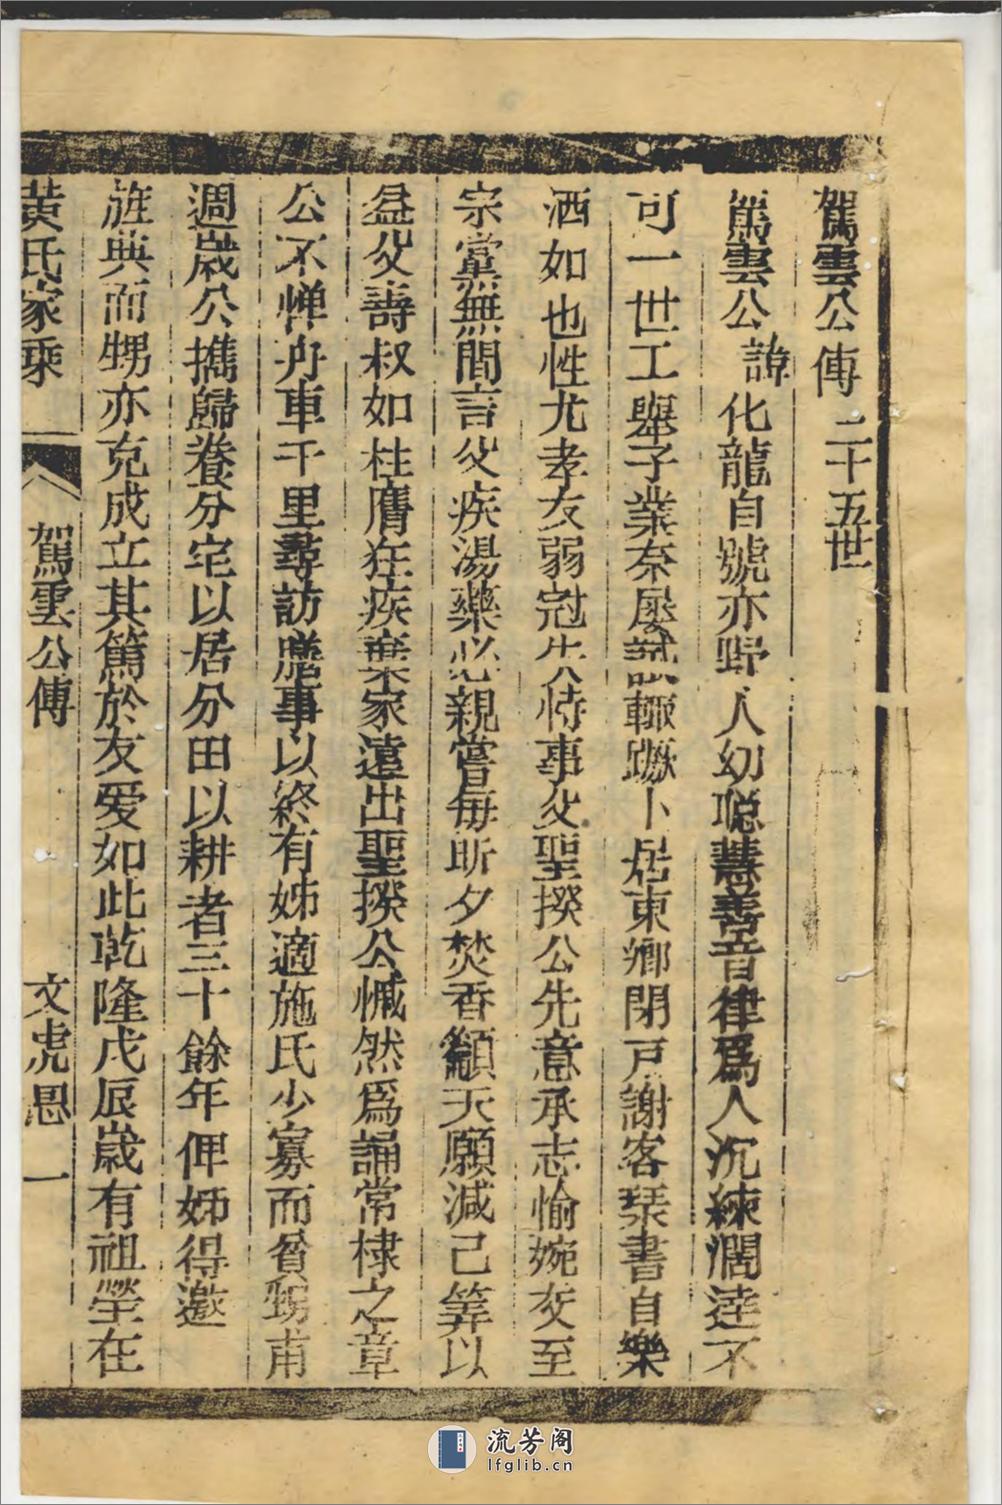 駕雲公傳 二十五世
駕雲公諱化龍自號亦野人幼聰慧善音律爲人沉練濶達不
可一世工舉子業奈屢試輒蹶卜居東鄉閉戸謝客琹書自樂
洒如也性尤孝友弱冠失恃事父聖揆公先意承志愉婉交至
宗黨無間言父疾湯藥必親嘗每昕夕焚香籲天願減己筭以
益父壽叔如柱膺狂疾棄家遠出聖揆公慽然爲誦常棣之章
公不憚舟車千里尋訪膳事以終有姊適施氏少寡而貧甥甫
週歲公擕歸養分宅以居分田以耕者三十餘年俾姊得邀
旌典而甥亦克成立其篤於友爱如此乾隆戊辰歲有祖塋在
黃氏家乘
駕雲公傳
文虎思
一
流芳阁
lfglib.cn